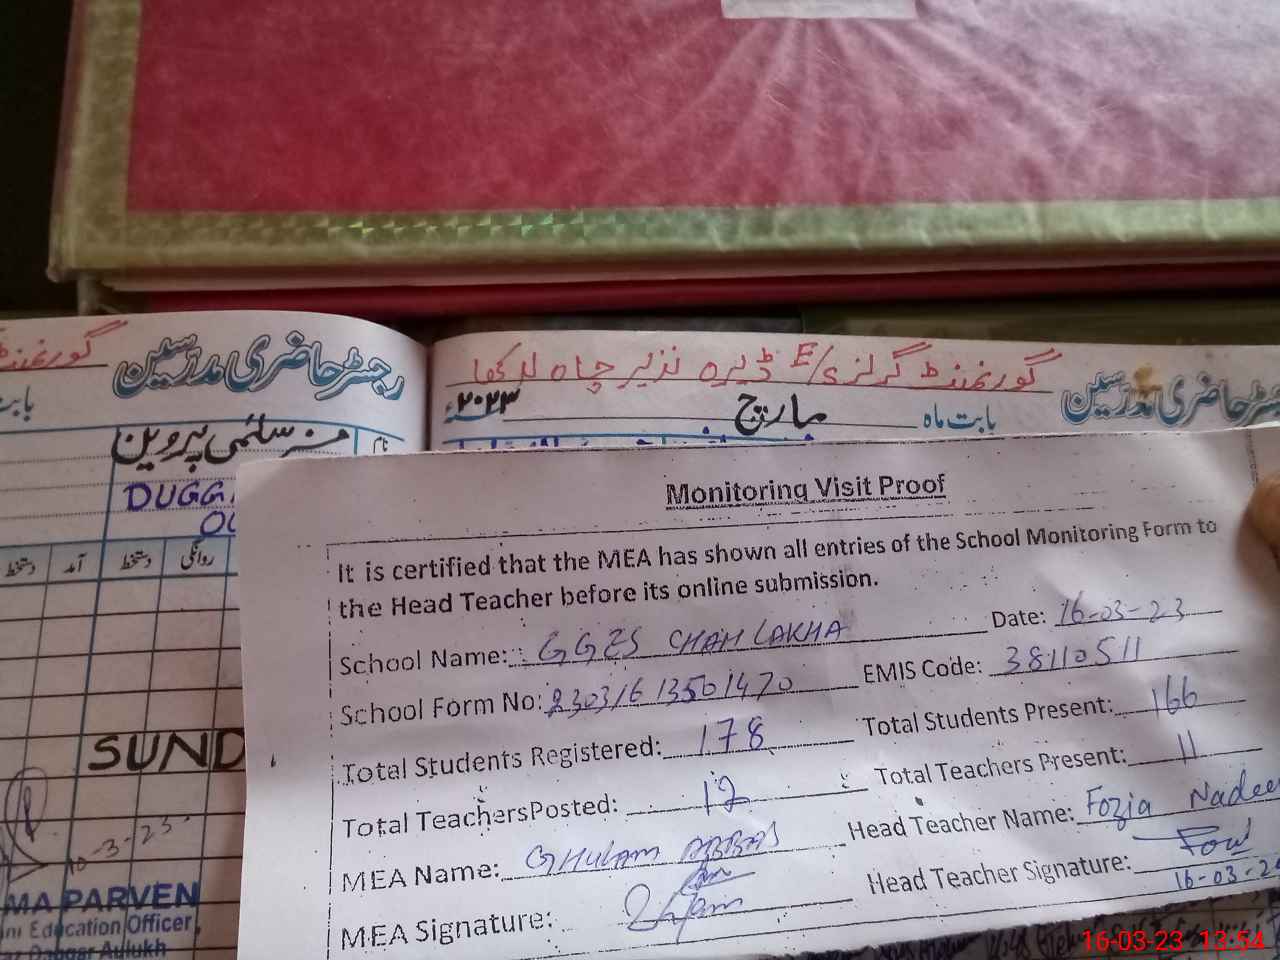 گورنمنٹ
رجسٹر حاضری مدرسین
بابت
مسز سلمی پروین
نام
DUGG
دستخط آمد دستخط روانگی
SUND
10-3-23
MA PARVEN
Education Officer
Aulukh
گورنمنٹ گرلز E/S ڈیرہ نذیر چاہ لاکھا
رجسٹر حاضری مدرسین
بابت ماہ مارچ ۲۰۲۳ء
Monitoring Visit Proof
It is certified that the MEA has shown all entries of the School Monitoring Form to
the Head Teacher before its online submission.
School Name: GGES CHAH LAKHA Date: 16-03-23
School Form No: 23031613501470 EMIS Code: 38110511
Total Students Registered: 178 Total Students Present: 166
Total TeachersPosted: 12 Total Teachers Present: 11
MEA Name: GHULAM ABBAS Head Teacher Name: Fozia Nadee
MEA Signature: Head Teacher Signature:
16-03-23
16-03-23 13:54